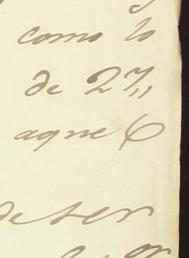 como lo
de 27,,
aque
de ser